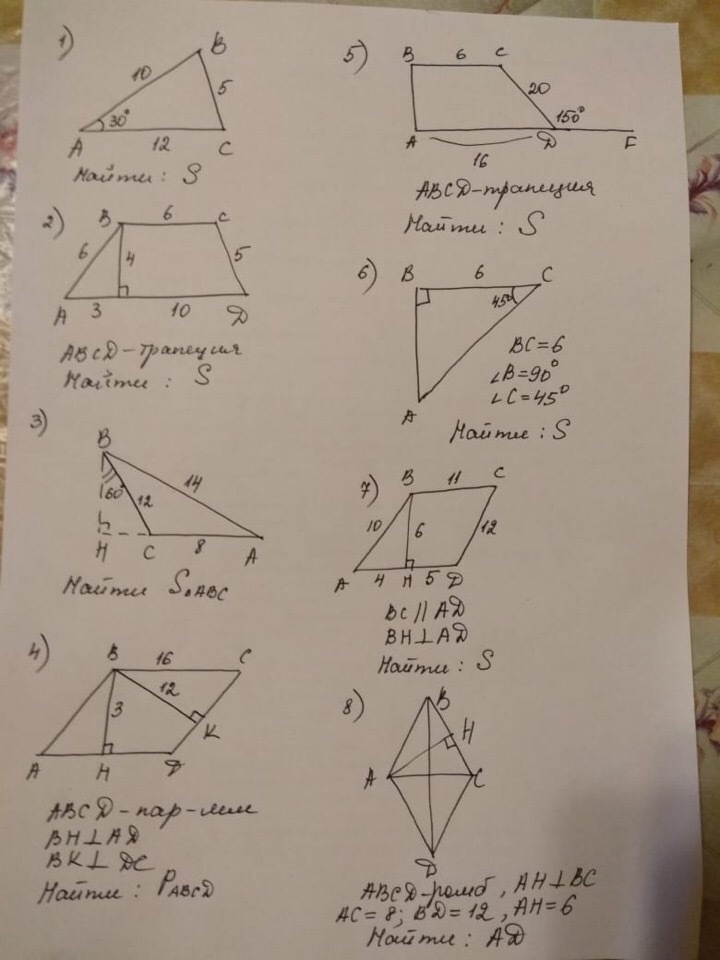 1)
B
10
5
30°
A
12
C
Найти: S
2)
B
6
C
6
4
5
A
3
10
D
ABCD-трапеция
Найти: S
3)
B
60°
12
14
H
C
8
A
Найти S△ABC
4)
B
16
C
12
3
K
A
H
D
ABCD-пар-мм
BH⊥AD
BK⊥DC
Найти: PABCD
5)
B
6
C
20
150°
A
D
F
16
ABCD-трапеция
Найти: S
6)
B
6
C
45°
BC=6
∠B=90°
∠C=45°
A
Найти: S
7)
B
11
C
10
6
12
A
4
H
5
D
BC//AD
BH⊥AD
Найти: S
8)
B
H
A
C
D
ABCD-ромб, AH⊥BC
AC=8; BD=12, AH=6
Найти: AD